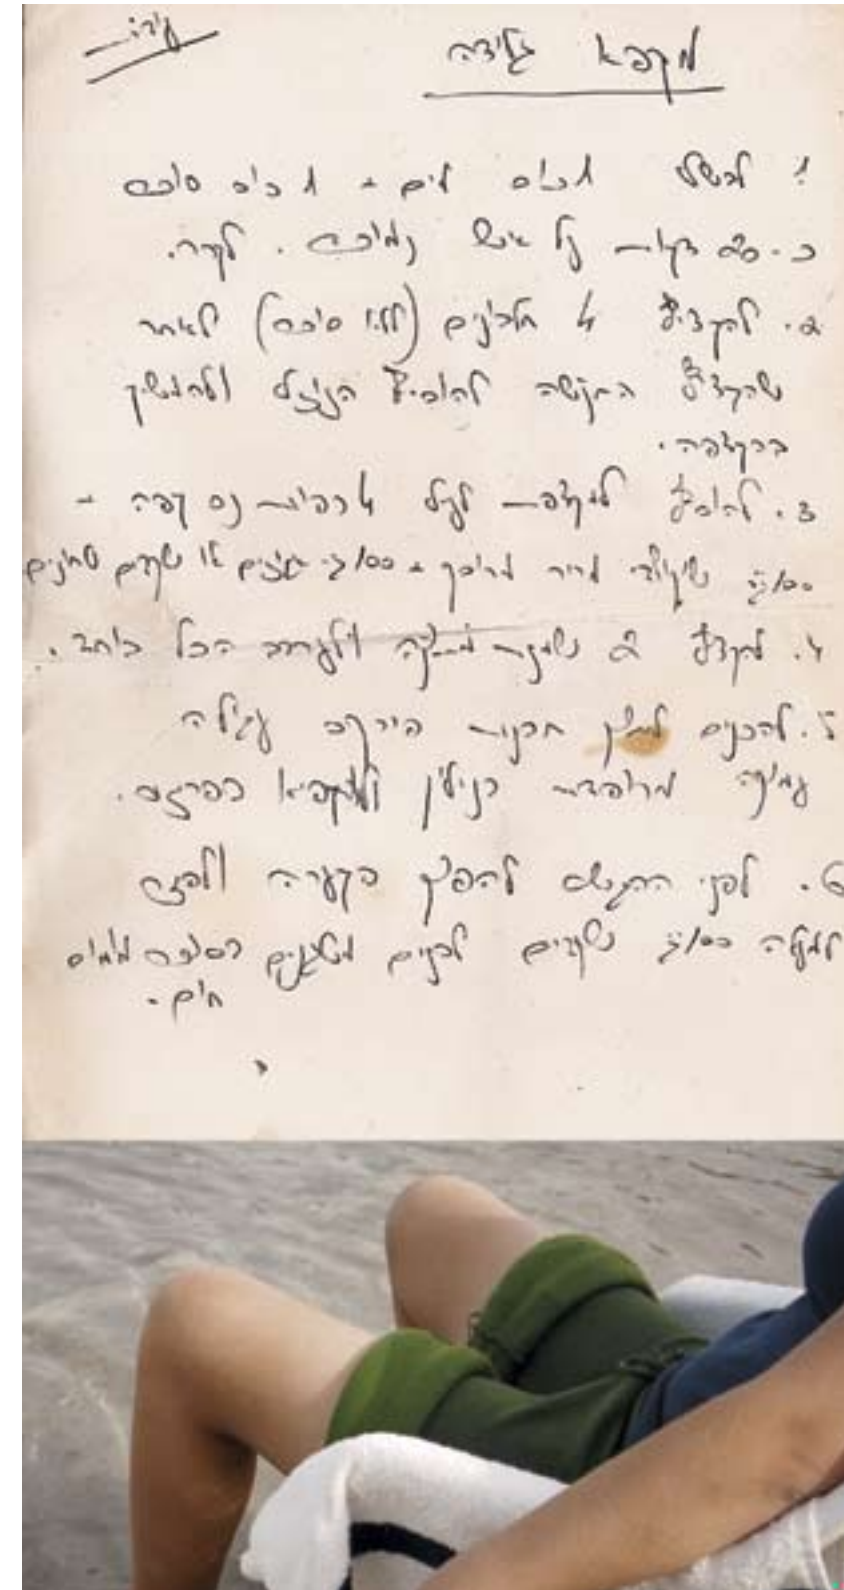 מקפא גלידה
1. לבשל 1 כוס מים + 1 כוס סוכר
כ-20 דקות על אש נמוכה. לקרר.
2. להקציף 4 חלבונים (ללא סוכר) לאחר
שהקצף התקשה להוסיף הנוזל ולהמשיך
בהקצפה.
3. להוסיף לקצפת לעיל 4 כפיות נס קפה +
100 גר' שוקולד מריר מרוסק + 100 גר' אגוזים או שקדים טחונים
4. להקציף 2 שמנת מתוקה ולערבב הכל ביחד.
5. להכניס לתוך תבנית פיירקס עגולה
עמוקה מרופדת בניילון ולהקפיא בפריזר.
6. לפני ההגשה להפוך בקערה ולפזר
למעלה 100 גר' שקדים לבנים מטוגנים בסוכר
חום.